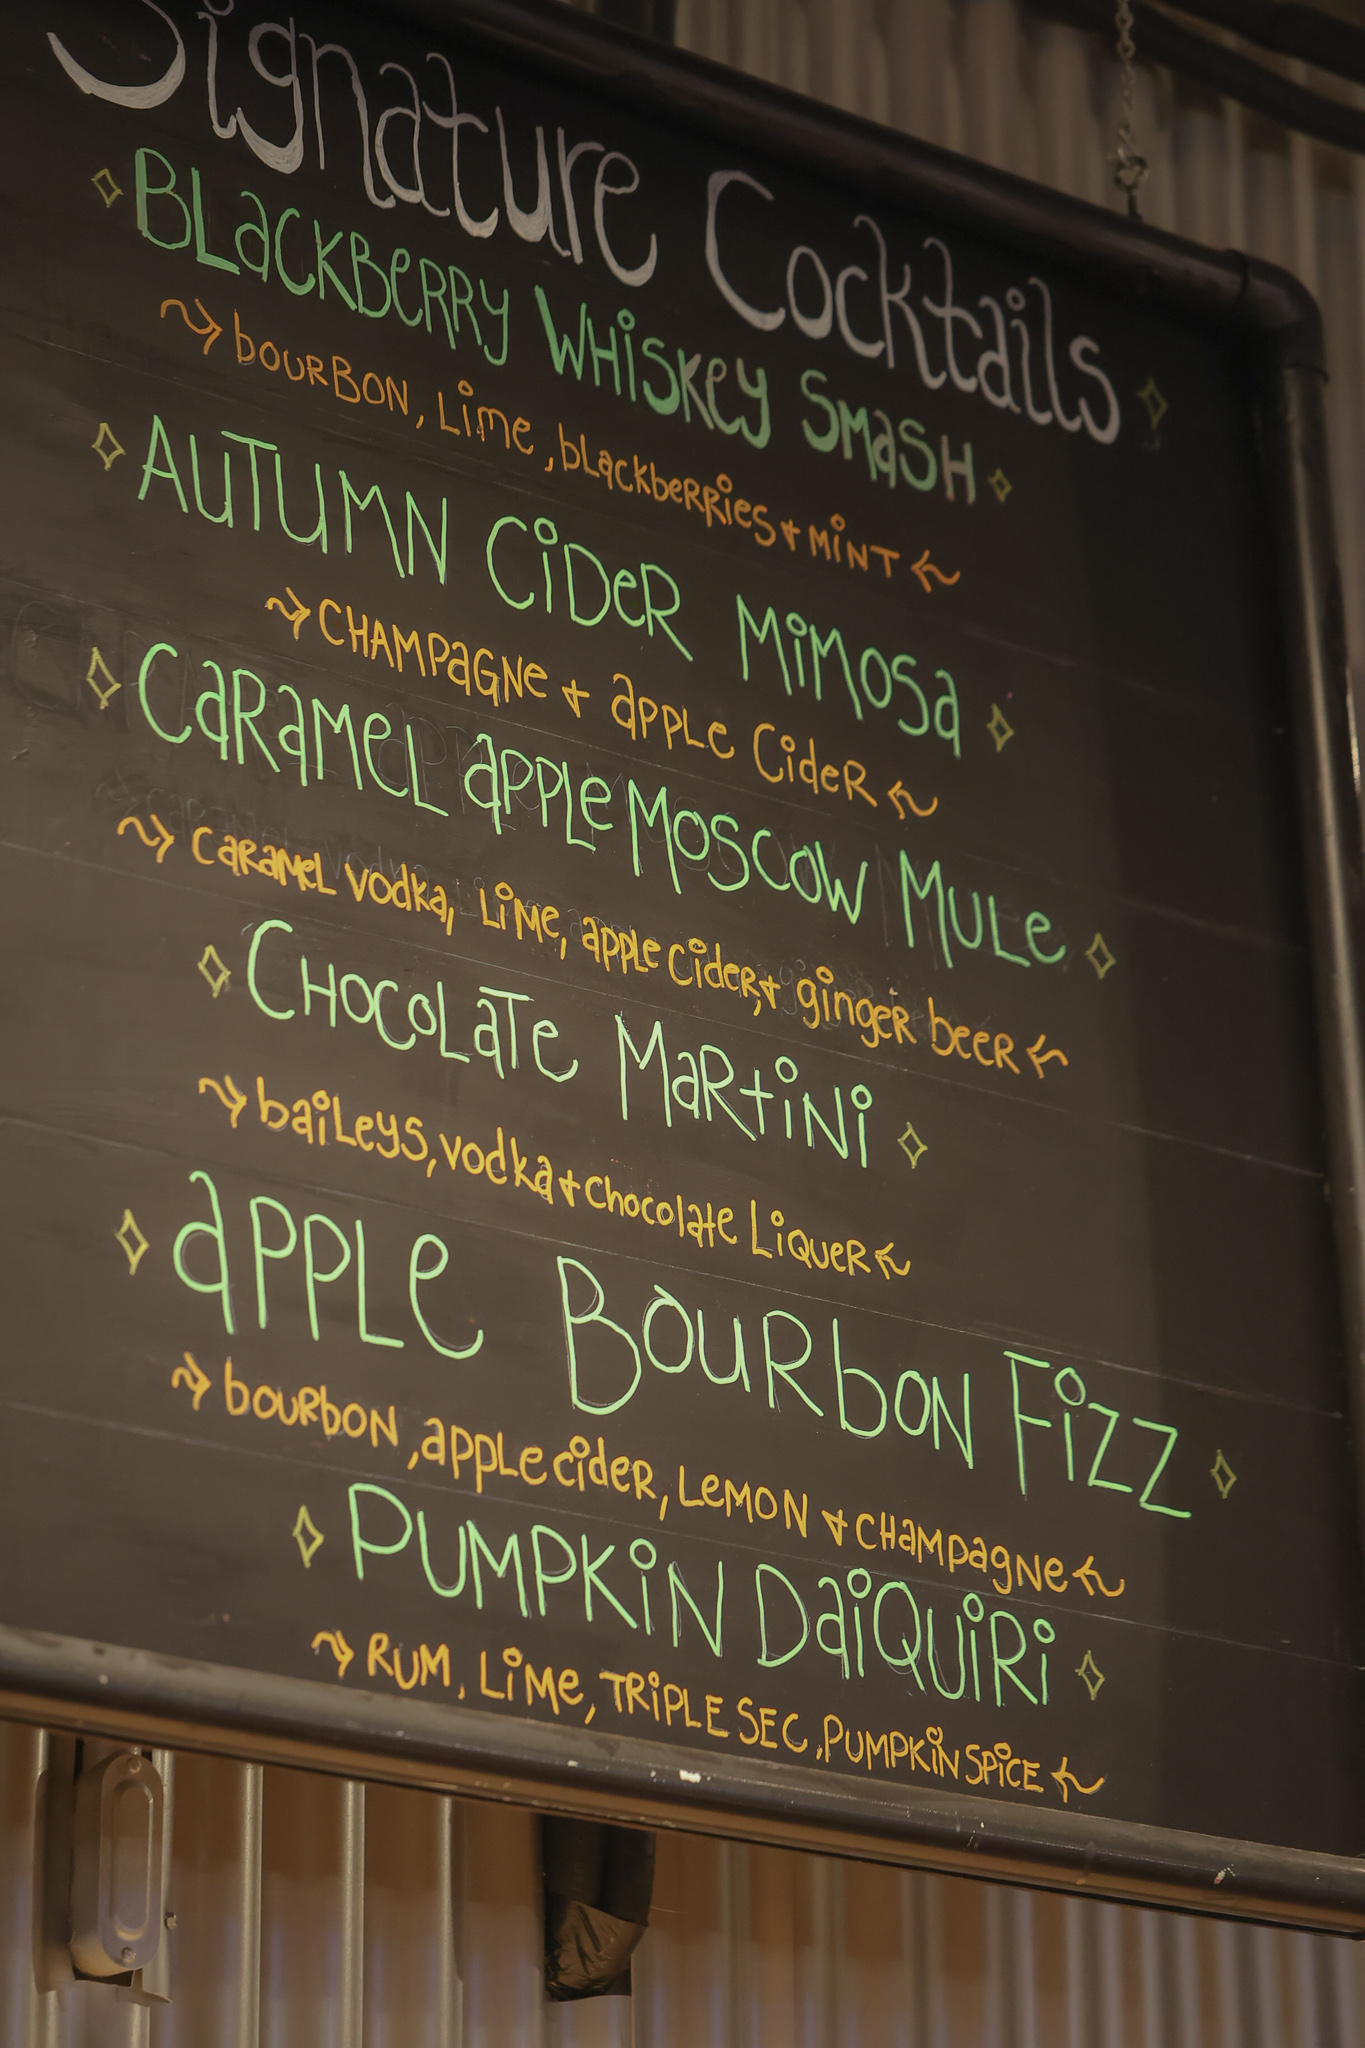 Signature Cocktails
BLaCKBeRRy WHiSKey SMaSH
bOURBON, Lime, blackbeRRies + MINT
AUTUMN CiDeR MiMOSa
CHAMPaGNe + apple CideR
CaRaMeL apple MOSCOW MULe
CaRaMeL vodka, LiMe, apple cider, + gingeR beeR
CHOCOLaTe MaRtiNi
baiLeys, vodka + chocolate LiQUeR
aPPLe BOURbON FiZZ
bourbon, apple cider, LeMON + CHaMpagNe
PUMPKiN DaiQUiRi
RUM, LiMe, TRiPLE SEC, PUMPKiN SPiCE